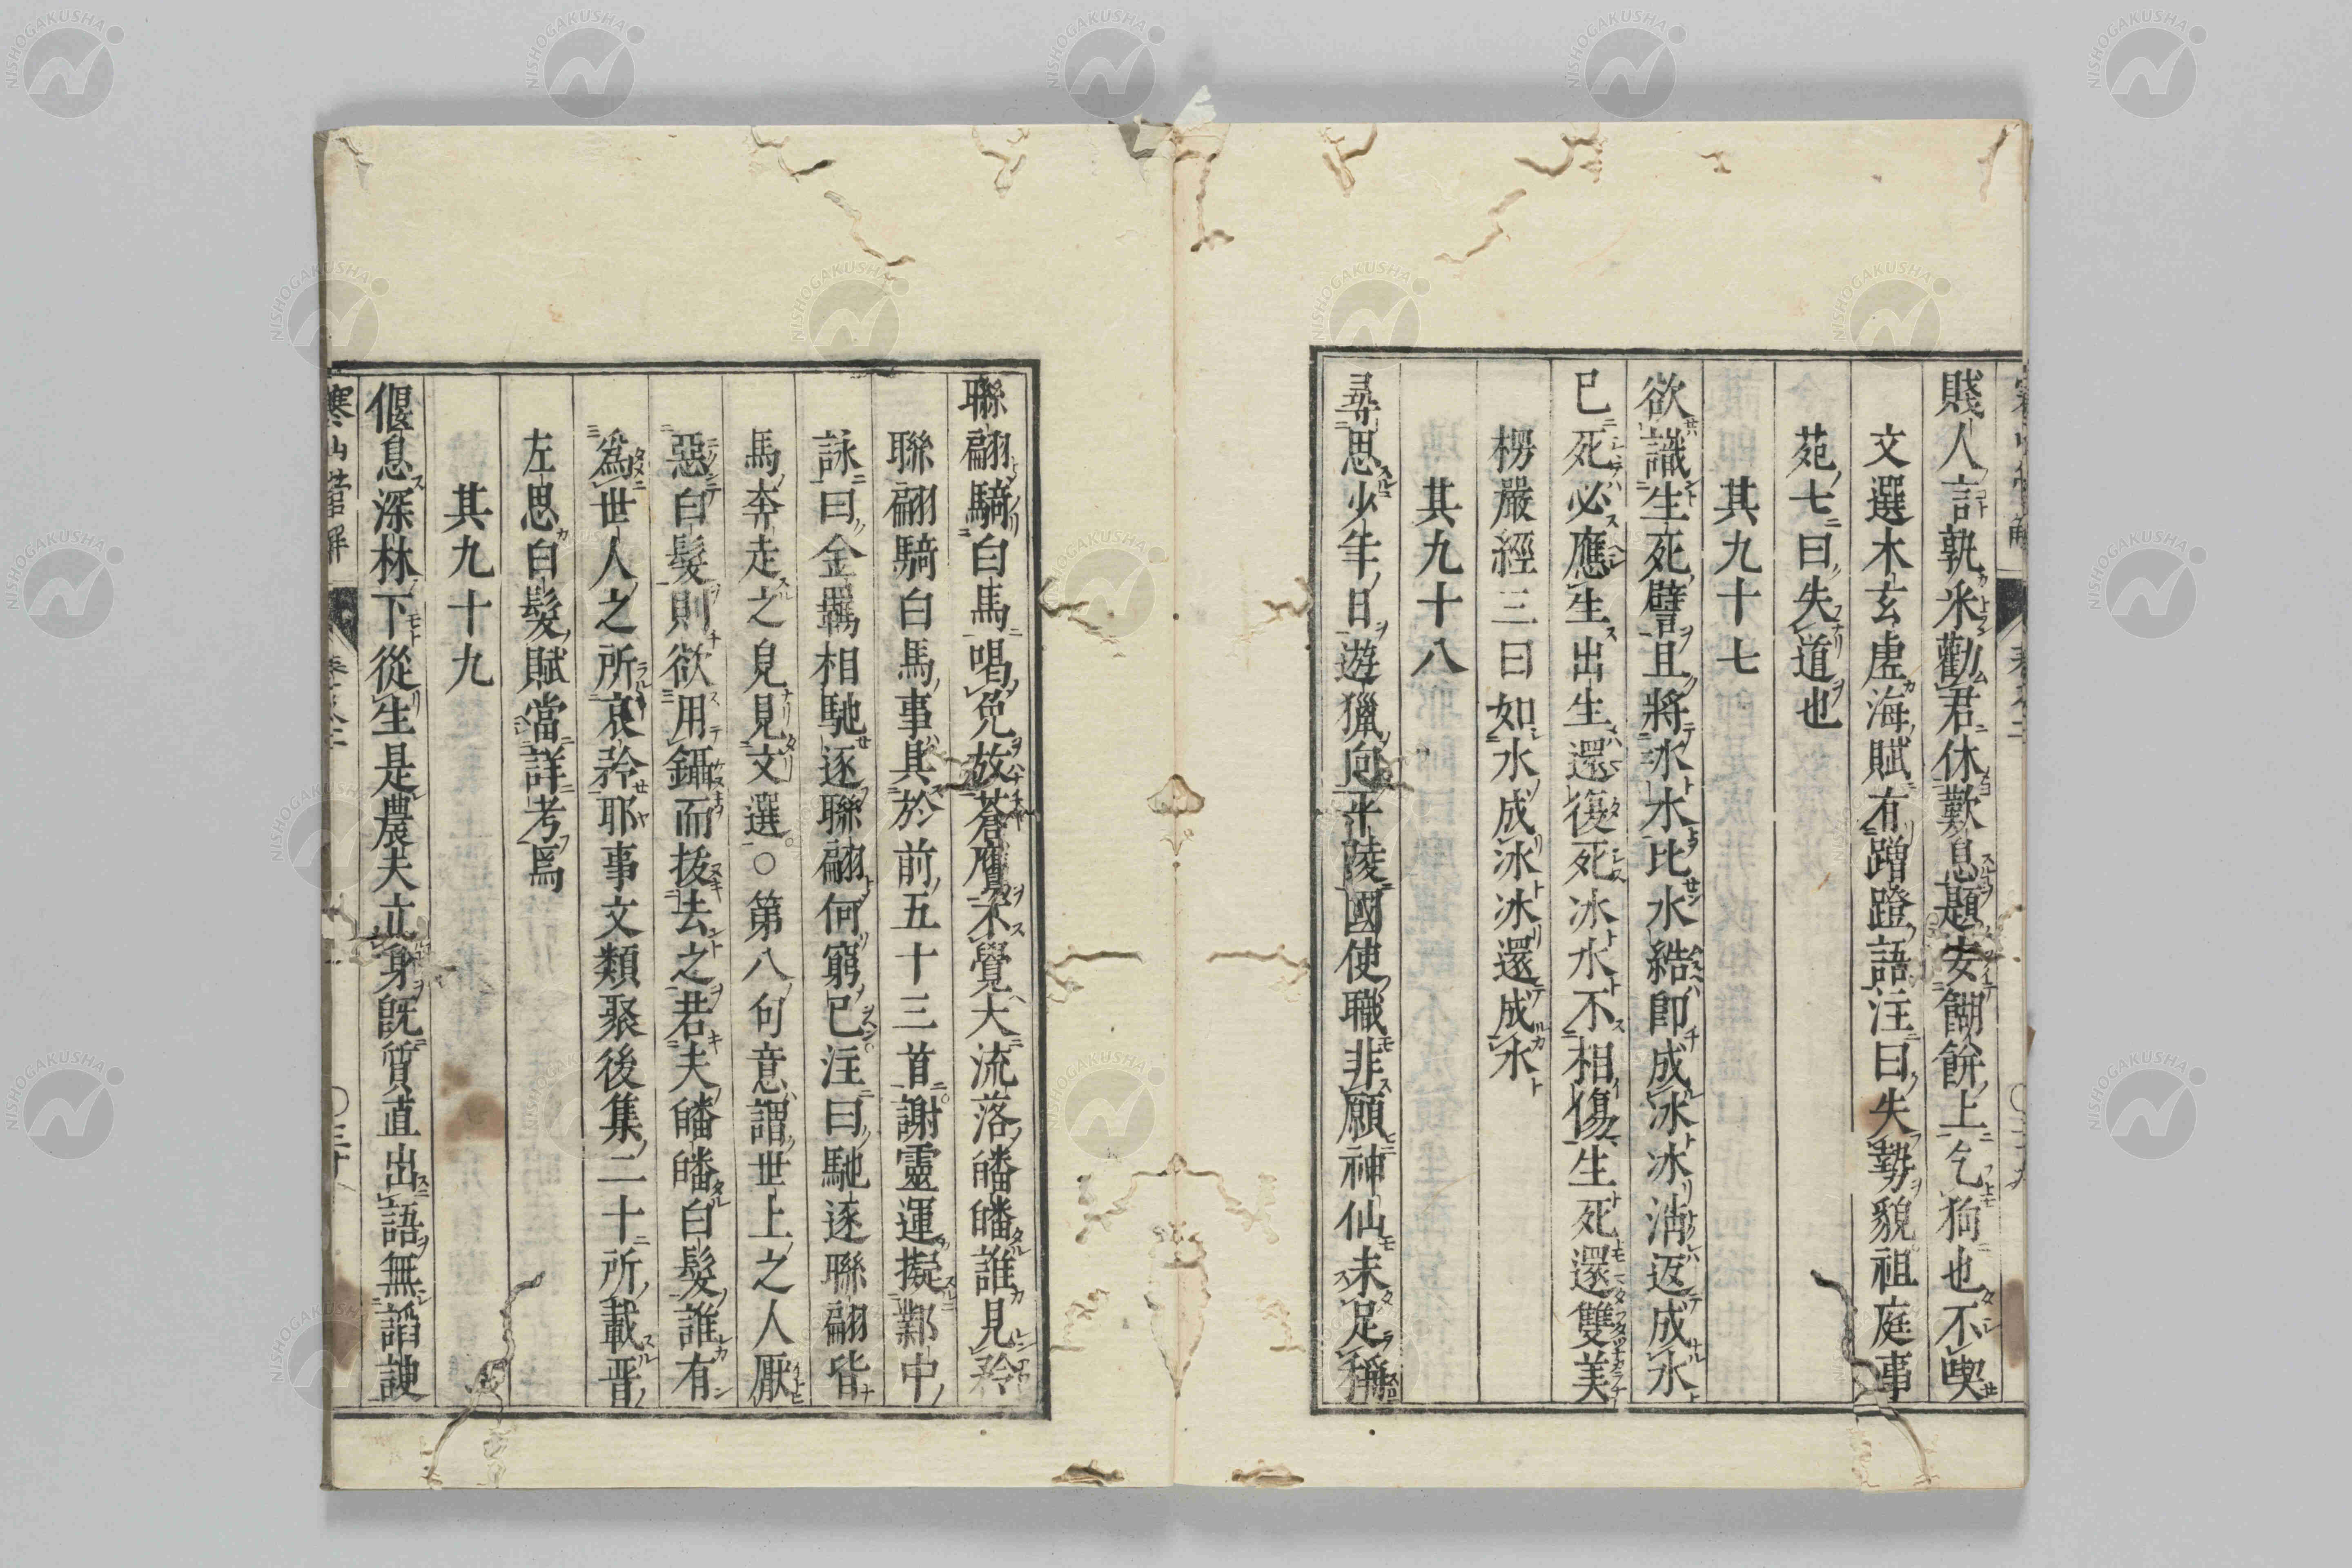 賤人言孰米勸君休歎息題安餬餅上乞狗也不喫
文選木玄虛海賦有蹭蹬語注曰失勢貌祖庭事
苑七曰失道也
其九十七
欲識生死譬且將冰水比水結即成冰冰消返成水
已死必應生出生還復死冰水不相傷生死還雙美
楞嚴經三曰如水成冰冰還成水
其九十八
尋思少年日遊獵向平陵國使職非願神仙未足稱
聯翩騎白馬喝兔放蒼鷹不覺大流落皤皤誰見矜
聯翩騎白馬事具於前五十三首謝靈運擬鄴中
詠曰金羈相馳逐聯翩何窮已注曰馳逐聯翩皆
馬奔走之貌見文選○第八句意謂世上之人厭
惡白髮則欲用鑷而拔去之若夫皤皤白髮誰有
為世人之所哀矜耶事文類聚後集二十所載晋
左思白髮賦當詳考焉
其九十九
偃息深林下從生是農夫立身既質直出語無諂諛
寒山詩管解
NISHOGAKUSHA